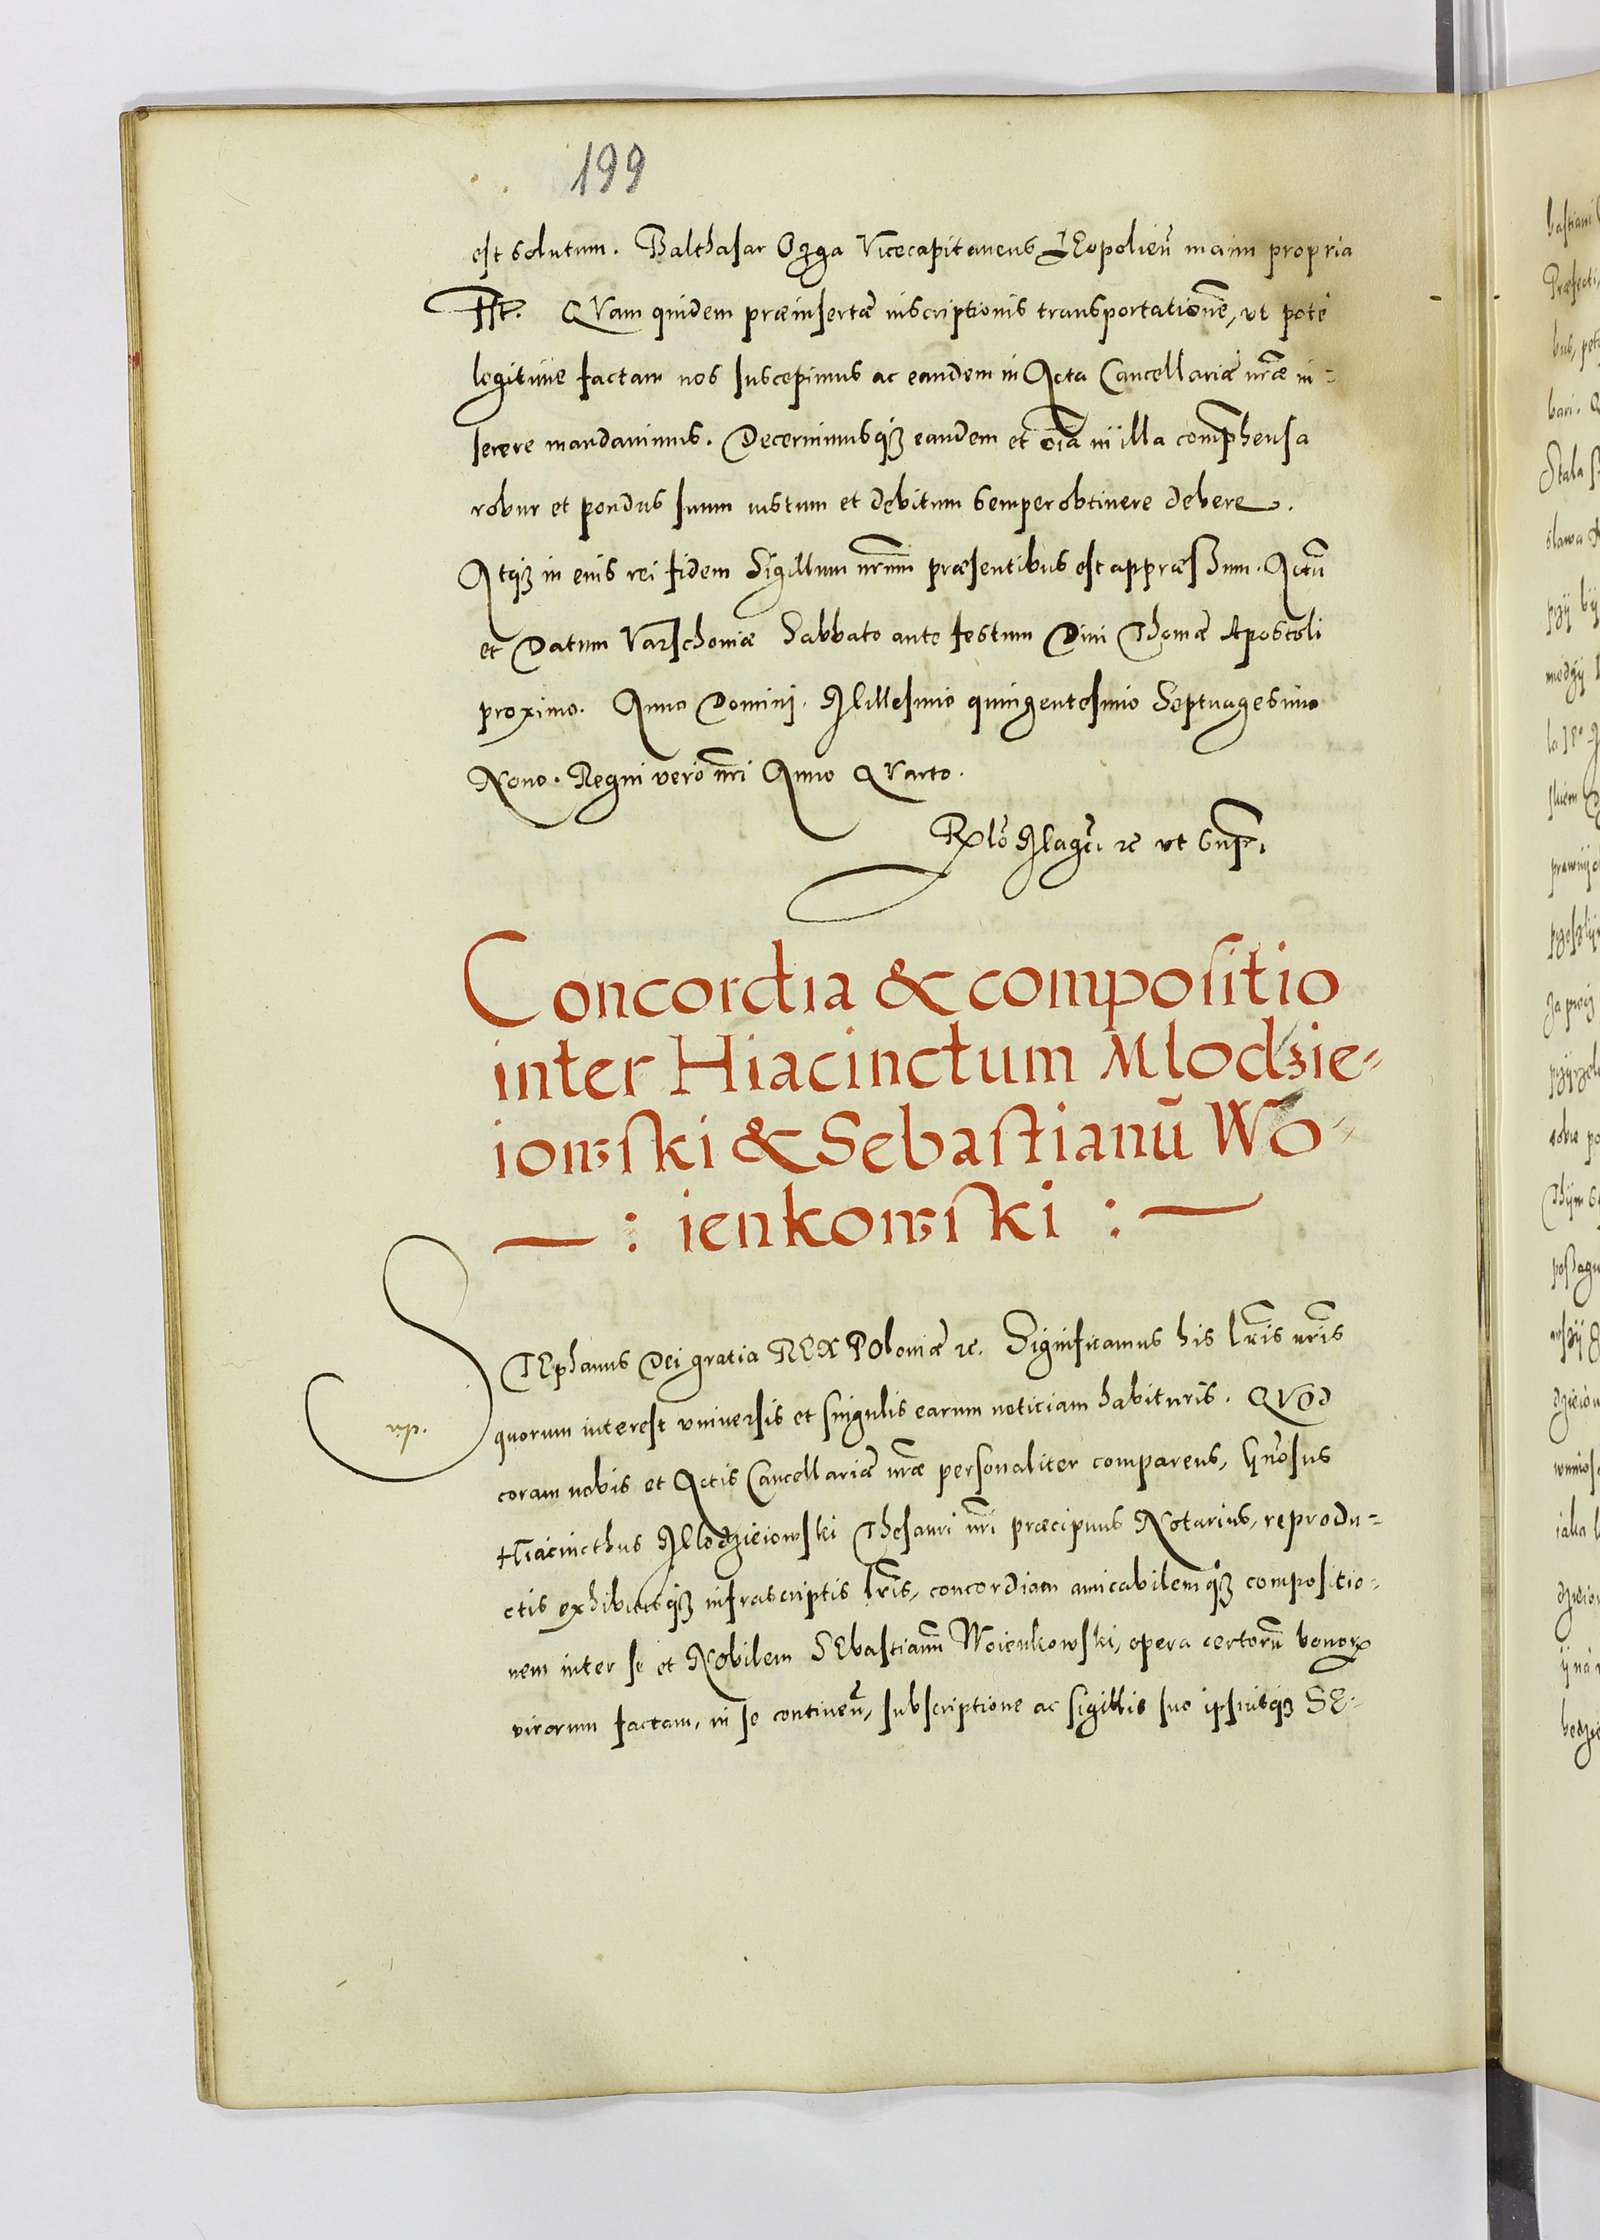 199
est solutum. Balthasar Ozga Vicecapitaneus LEopolien̄ manu propria
sst. QVam quidem præinsertæ inscriptionis transportationē, ut pote
legitime factam nos suscepimus ac eandem in Acta Cancellariæ nr̃æ in-
serere mandavimus. Decernimusqꝫ eandem et oĩa in illa comp̃hensa
robur et pondus suum iustum et debitum semper obtinere debere.
Atqꝫ in eius rei fidem Sigillum nr̃um præsentibus est appræssum. Actũ
et Datum Varschoviæ Sabbato ante festum Divi Thomæ Apostoli
proximo. Anno Domini. Millesimo quingentesimo Septuagesimo
Nono. Regni vero nr̃i Anno QVarto.
ut sup̃.
Concordia & compositio
inter Hiacinctum Mlodzie-
iowski & Sebastianũ Wo-
: ienkowski :
STEphanus Dei gratia REX POloniæ ꝛc. Significamus his lr̃is nr̃is
quorum interest universis et singulis earum noticiam habituris. QVod
coram nobis et Actis Cancellariæ nr̃æ personaliter comparens, Gñosus
Hiacincthus Mlodzieiowski Thesauri nr̃i præcipuus Notarius, reprodu-
ctis exhibitisqꝫ infrascriptis lr̃is, concordiam amicabilemqꝫ compositio-
nem inter se et Nobilem SEbastianũ Woienkowski, opera certorũ bonoꝝ
virorum factam, in se continen̄, subscriptione ac sigillis suo ipsiusqꝫ SE-